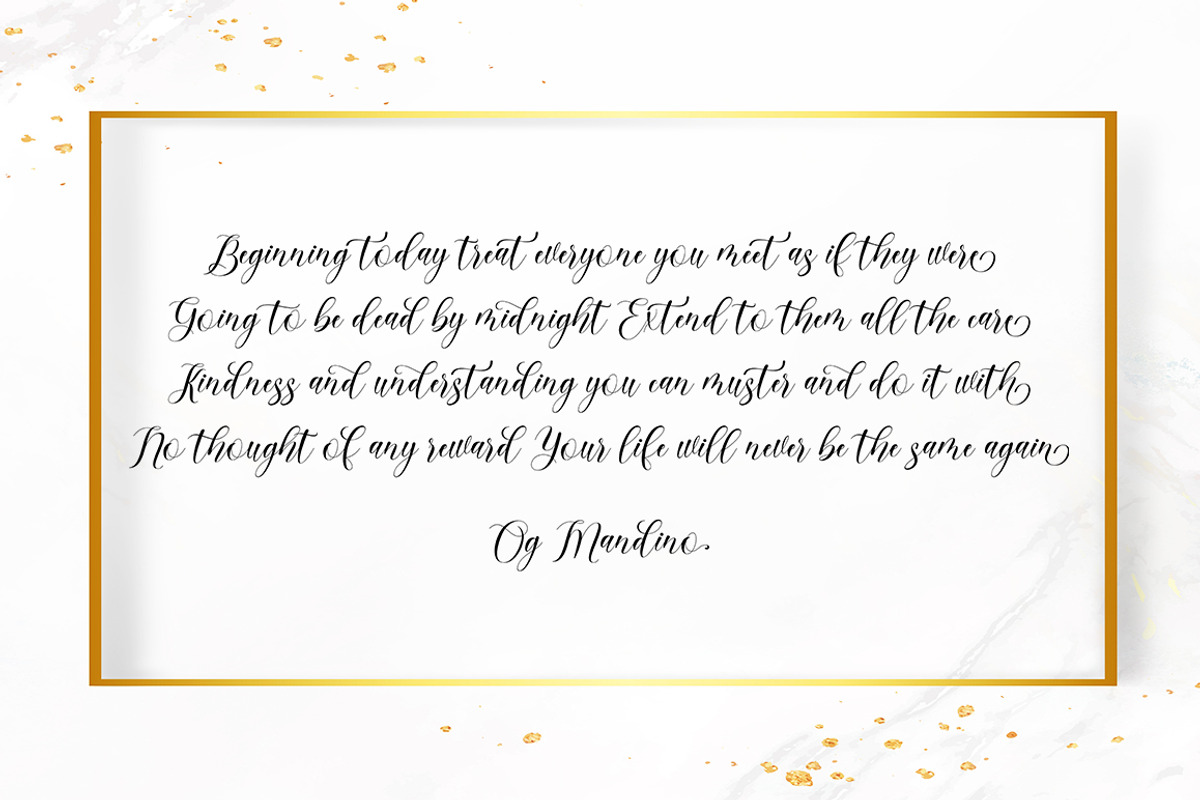 Beginning today treat everyone you meet as if they were
Going to be dead by midnight Extend to them all the care
Kindness and understanding you can muster and do it with
No thought of any reward Your life will never be the same again
Og Mandino.